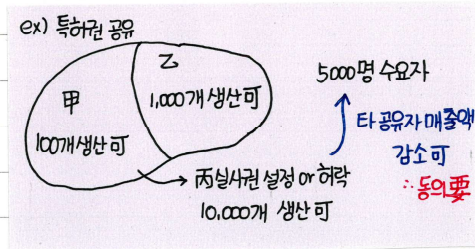 ex) 특허권 공유
甲
100개 생산 可
乙
1,000개 생산 可
丙 실시권 설정 or 허락
10,000개 생산 可
5000명 수요자
타 공유자 매출액
감소 可
∴ 동의 要